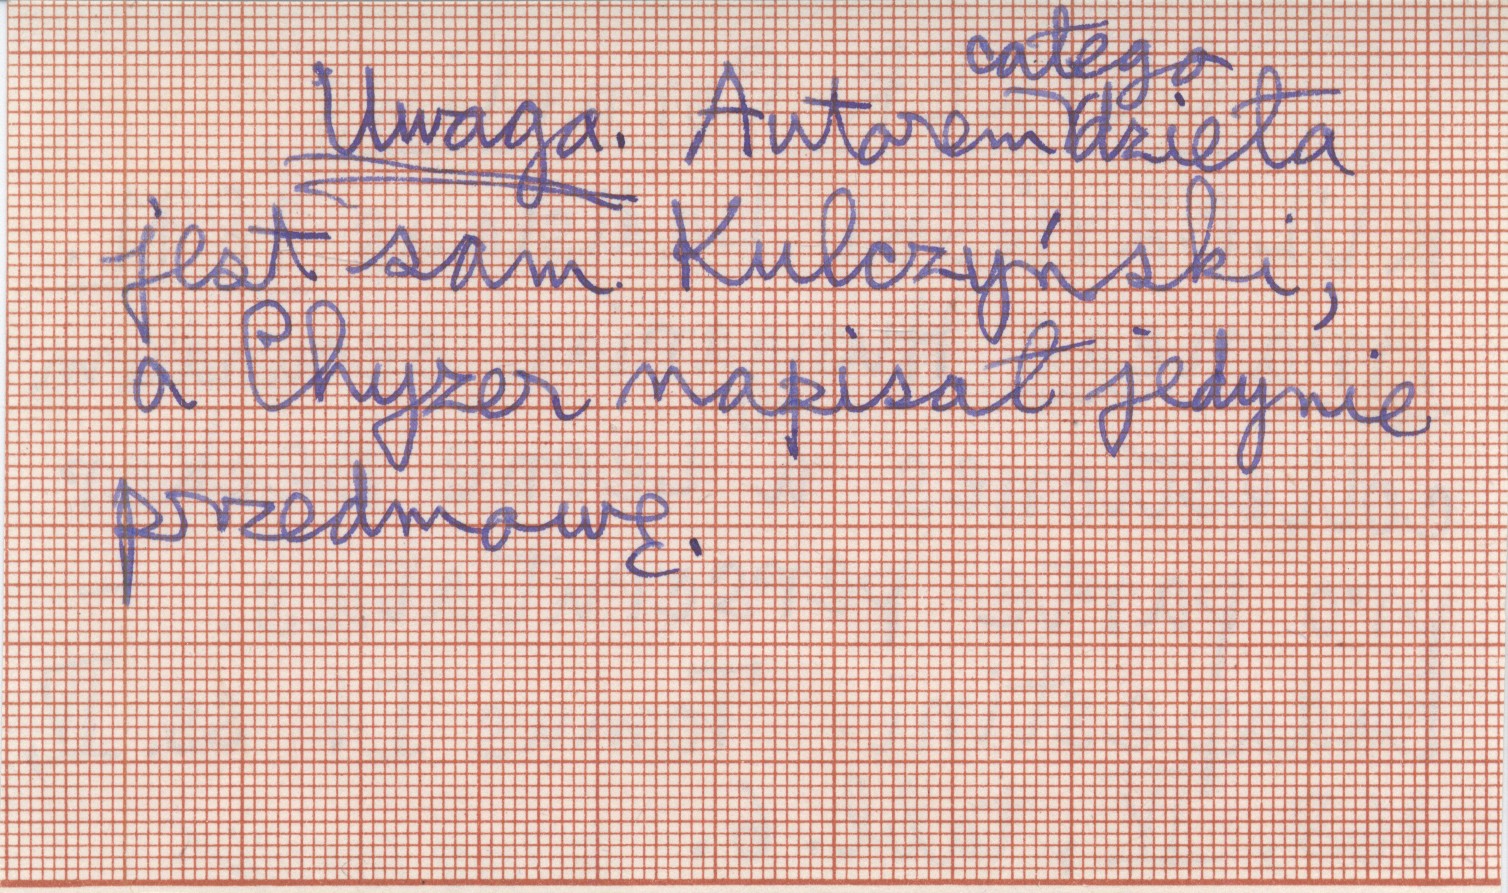 Uwaga. Autorem całego dzieła
jest sam Kulczyński,
a Chyzer napisał jedynie
przedmowę.